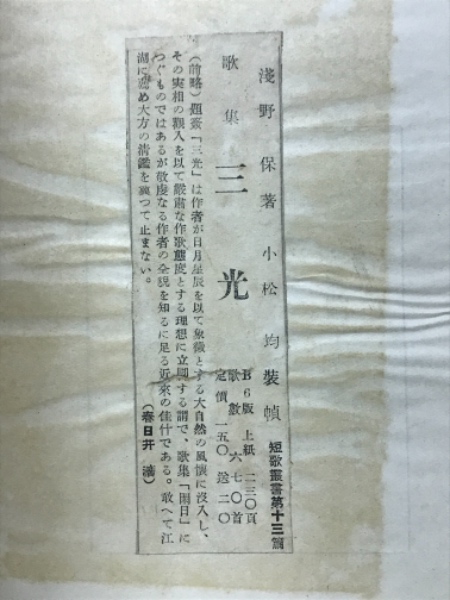 浅野保著 小松均装幀 短歌叢書第十三篇
歌集 三光
B6版 上紙 二三〇頁
歌数 六七〇首
定價 一五〇 送二〇
(前略)題簽「三光」は作者が日月星辰を以て象徴とする大自然の風懐に没入し、
その実相の観入を以て厳粛な作歌態度とする理想に立脚する謂で、歌集「閑日」に
つぐものではあるが敬虔なる作者の全貌を知るに足る近来の佳什である。敢へて江
湖に薦め大方の清鑑を冀つて止まない。
(春日井 瀇)